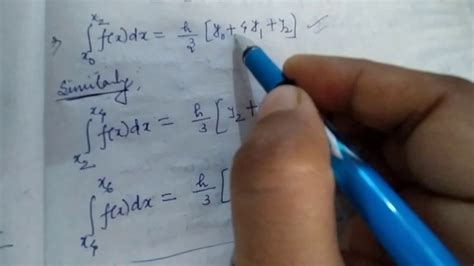 ⇒ ∫_{x₀}^{x₂} f(x)dx = h/3 [y₀ + 4y₁ + y₂]
Similarly,
∫_{x₂}^{x₄} f(x)dx = h/3 [y₂ +
∫_{x₄}^{x₆} f(x)dx = h/3 [